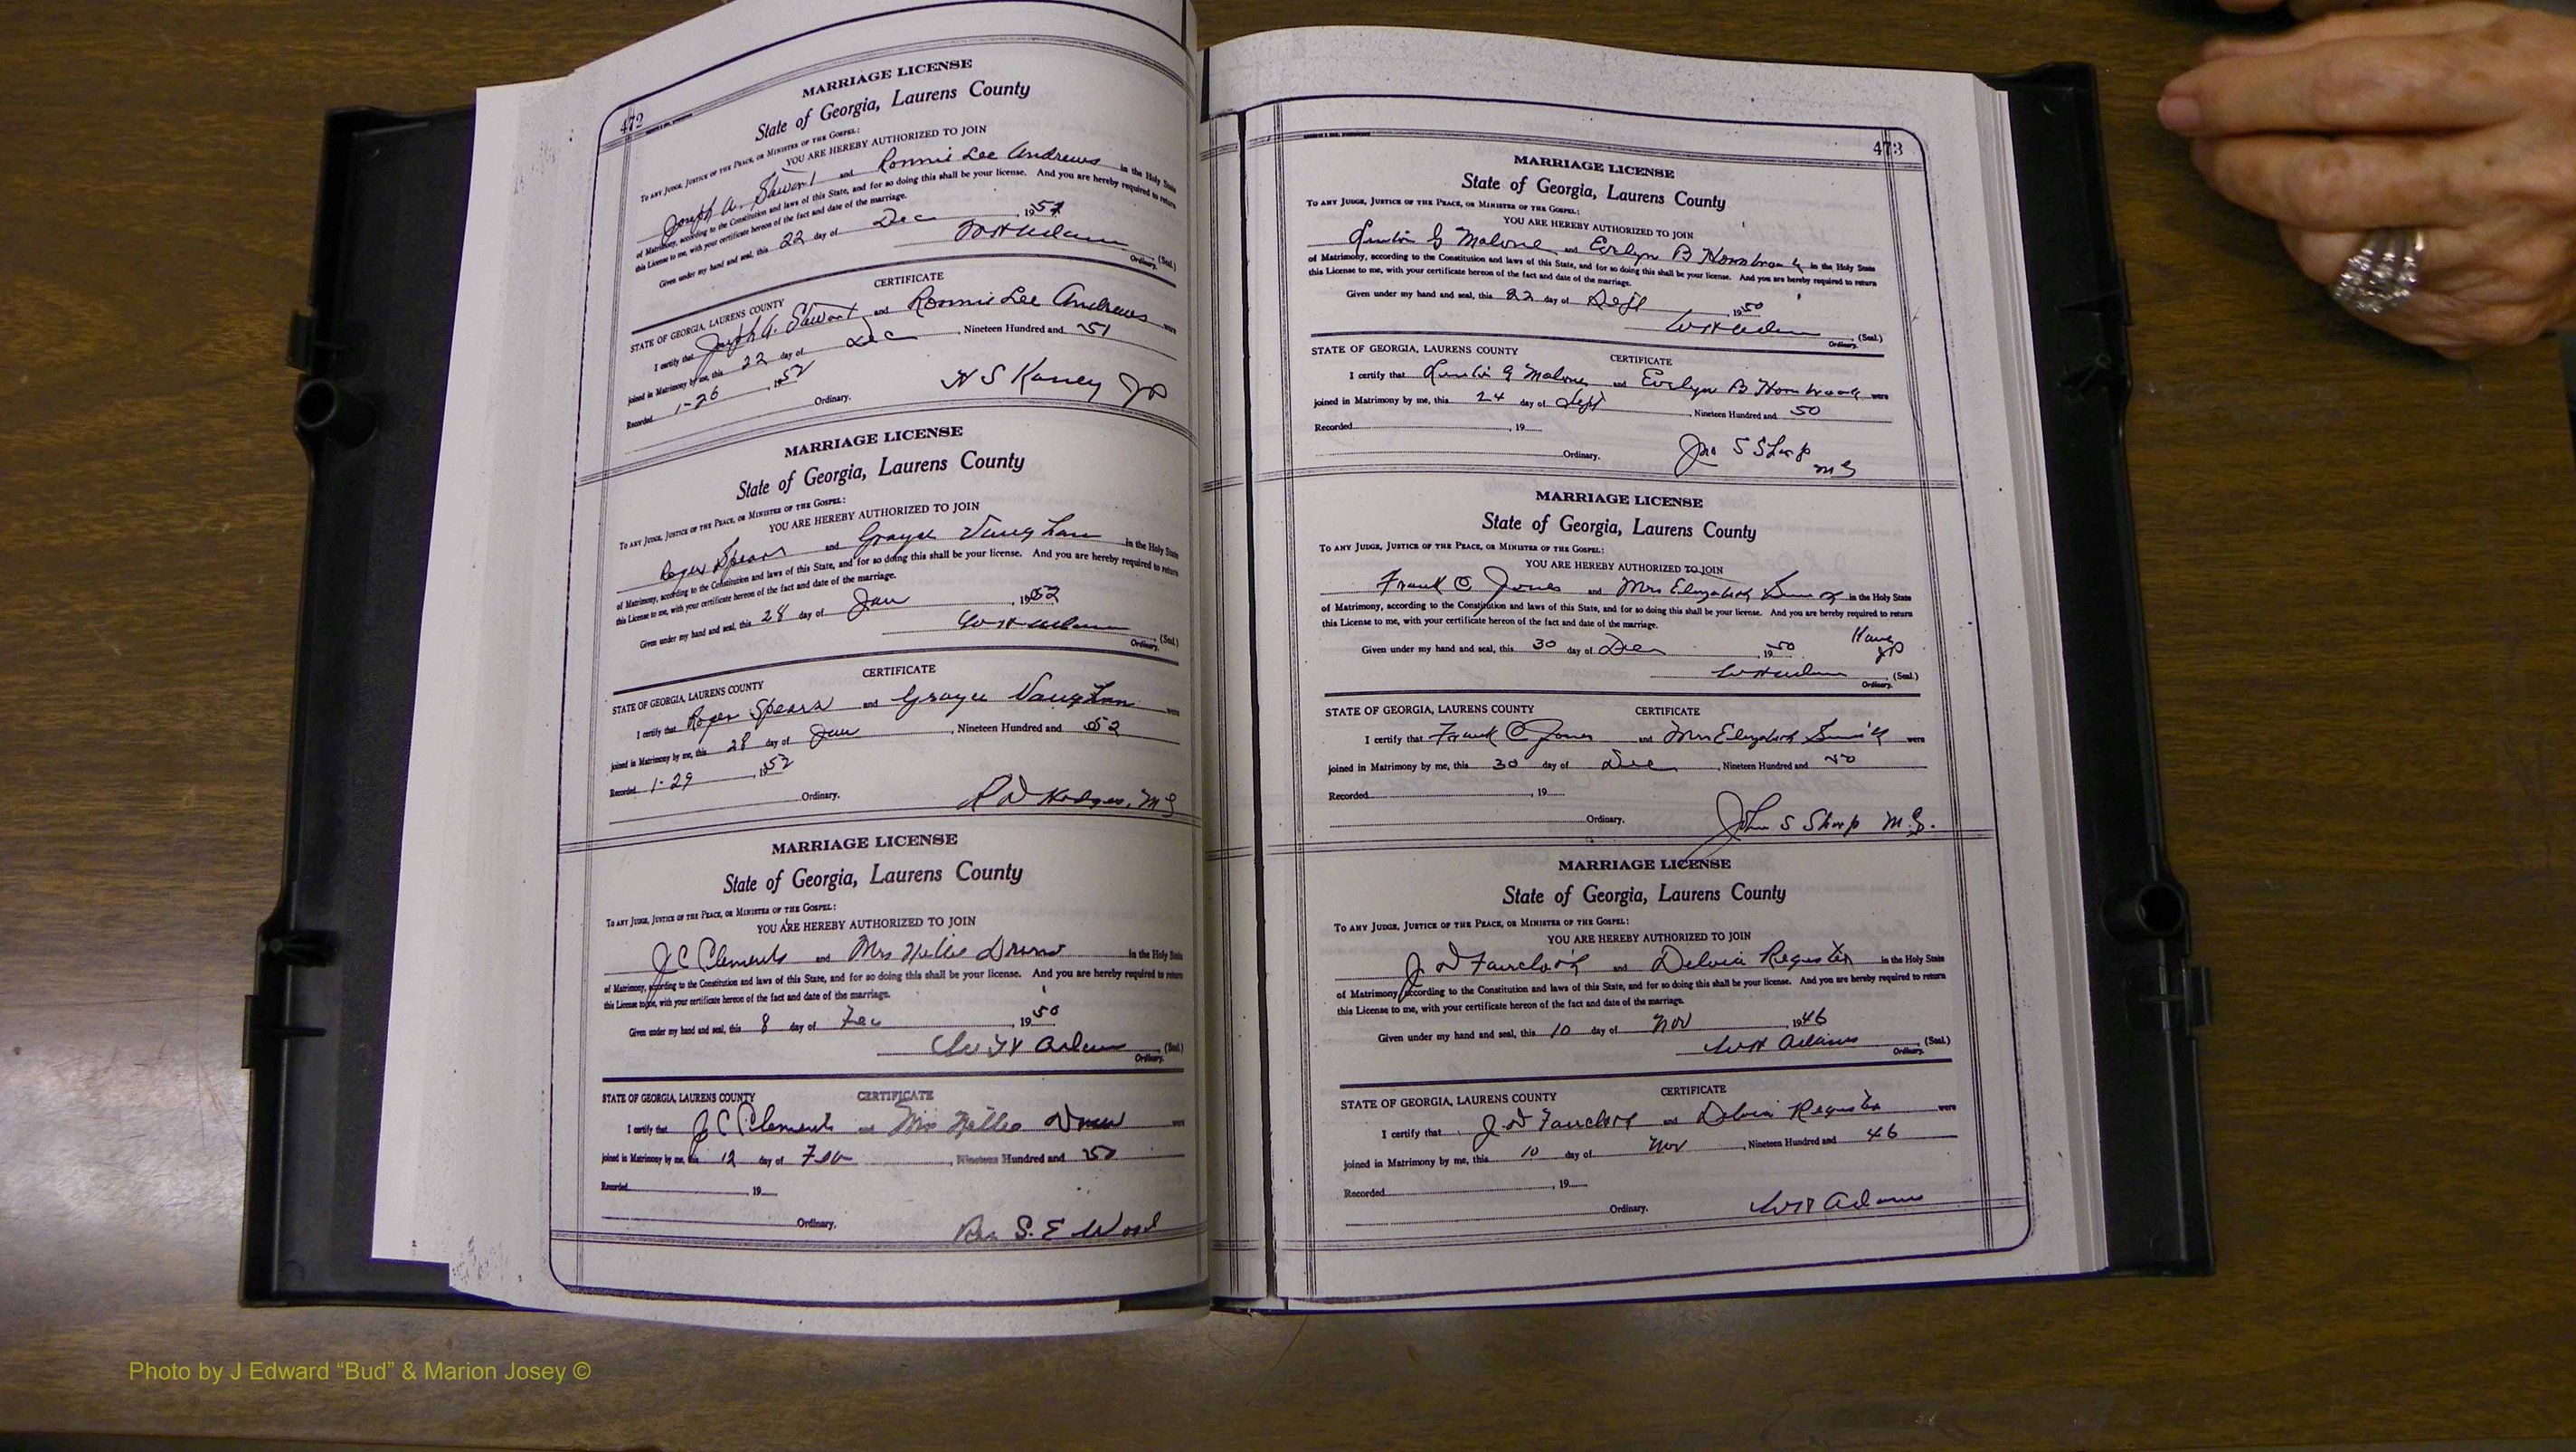 472
MARRIAGE LICENSE
State of Georgia, Laurens County
TO ANY JUDGE, JUSTICE OF THE PEACE, OR MINISTER OF THE GOSPEL:
YOU ARE HEREBY AUTHORIZED TO JOIN
Joseph A. Stewart and Ronnie Lee Andrews in the Holy State
of Matrimony, according to the Constitution and laws of this State, and for so doing this shall be your license. And you are hereby required to return
this License to me, with your certificate hereof of the fact and date of the marriage.
Given under my hand and seal, this 22 day of Dec, 1951
(Seal.)
Ordinary.
CERTIFICATE
STATE OF GEORGIA, LAURENS COUNTY
I certify that Joseph A. Stewart and Ronnie Lee Andrews were
joined in Matrimony by me, this 22 day of Dec, Nineteen Hundred and 51
Recorded 1-26, 1952
H S Kaney JP
Ordinary.
MARRIAGE LICENSE
State of Georgia, Laurens County
TO ANY JUDGE, JUSTICE OF THE PEACE, OR MINISTER OF THE GOSPEL:
YOU ARE HEREBY AUTHORIZED TO JOIN
Roger Spears and Vaughan in the Holy State
of Matrimony, according to the Constitution and laws of this State, and for so doing this shall be your license. And you are hereby required to return
this License to me, with your certificate hereof of the fact and date of the marriage.
Given under my hand and seal, this 28 day of Jan, 1952
(Seal.)
Ordinary.
CERTIFICATE
STATE OF GEORGIA, LAURENS COUNTY
I certify that Roger Spears and Vaughan were
joined in Matrimony by me, this 28 day of Jan, Nineteen Hundred and 52
Recorded 1-29, 1952
Ordinary. R D Hodges, MG
MARRIAGE LICENSE
State of Georgia, Laurens County
TO ANY JUDGE, JUSTICE OF THE PEACE, OR MINISTER OF THE GOSPEL:
YOU ARE HEREBY AUTHORIZED TO JOIN
J C Clements and Mrs Nellie in the Holy State
of Matrimony, according to the Constitution and laws of this State, and for so doing this shall be your license. And you are hereby required to return
this License to me, with your certificate hereof of the fact and date of the marriage.
Given under my hand and seal, this 8 day of, 1950
(Seal.)
Ordinary.
STATE OF GEORGIA, LAURENS COUNTY CERTIFICATE
I certify that J C Clements and Mrs Nellie were
joined in Matrimony by me, this 12 day of, Nineteen Hundred and 50
Recorded, 19
Ordinary. Rev S. E Wood
473
MARRIAGE LICENSE
State of Georgia, Laurens County
TO ANY JUDGE, JUSTICE OF THE PEACE, OR MINISTER OF THE GOSPEL:
YOU ARE HEREBY AUTHORIZED TO JOIN
G Malone and Evelyn B in the Holy State
of Matrimony, according to the Constitution and laws of this State, and for so doing this shall be your license. And you are hereby required to return
this License to me, with your certificate hereof of the fact and date of the marriage.
Given under my hand and seal, this 22 day of Sept, 1950
(Seal.)
Ordinary.
STATE OF GEORGIA, LAURENS COUNTY CERTIFICATE
I certify that G Malone and Evelyn B were
joined in Matrimony by me, this 24 day of Sept, Nineteen Hundred and 50
Recorded, 19
Ordinary. Jno S Sharp
MG
MARRIAGE LICENSE
State of Georgia, Laurens County
TO ANY JUDGE, JUSTICE OF THE PEACE, OR MINISTER OF THE GOSPEL:
YOU ARE HEREBY AUTHORIZED TO JOIN
Frank C Jones and Mrs Elizabeth Smith in the Holy State
of Matrimony, according to the Constitution and laws of this State, and for so doing this shall be your license. And you are hereby required to return
this License to me, with your certificate hereof of the fact and date of the marriage.
Given under my hand and seal, this 30 day of Dec, 1950
(Seal.)
Ordinary.
STATE OF GEORGIA, LAURENS COUNTY CERTIFICATE
I certify that Frank C Jones and Mrs Elizabeth Smith were
joined in Matrimony by me, this 30 day of Dec, Nineteen Hundred and 50
Recorded, 19
Ordinary. John S Sharp M.G.
MARRIAGE LICENSE
State of Georgia, Laurens County
TO ANY JUDGE, JUSTICE OF THE PEACE, OR MINISTER OF THE GOSPEL:
YOU ARE HEREBY AUTHORIZED TO JOIN
J. D Faircloth and Delvia Register in the Holy State
of Matrimony, according to the Constitution and laws of this State, and for so doing this shall be your license. And you are hereby required to return
this License to me, with your certificate hereof of the fact and date of the marriage.
Given under my hand and seal, this 10 day of Nov, 1946
W H Adams (Seal.)
Ordinary.
STATE OF GEORGIA, LAURENS COUNTY CERTIFICATE
I certify that J. D Faircloth and Delvia Register were
joined in Matrimony by me, this 10 day of Nov, Nineteen Hundred and 46
Recorded, 19
Ordinary. W H Adams
Photo by J Edward “Bud” & Marion Josey ©